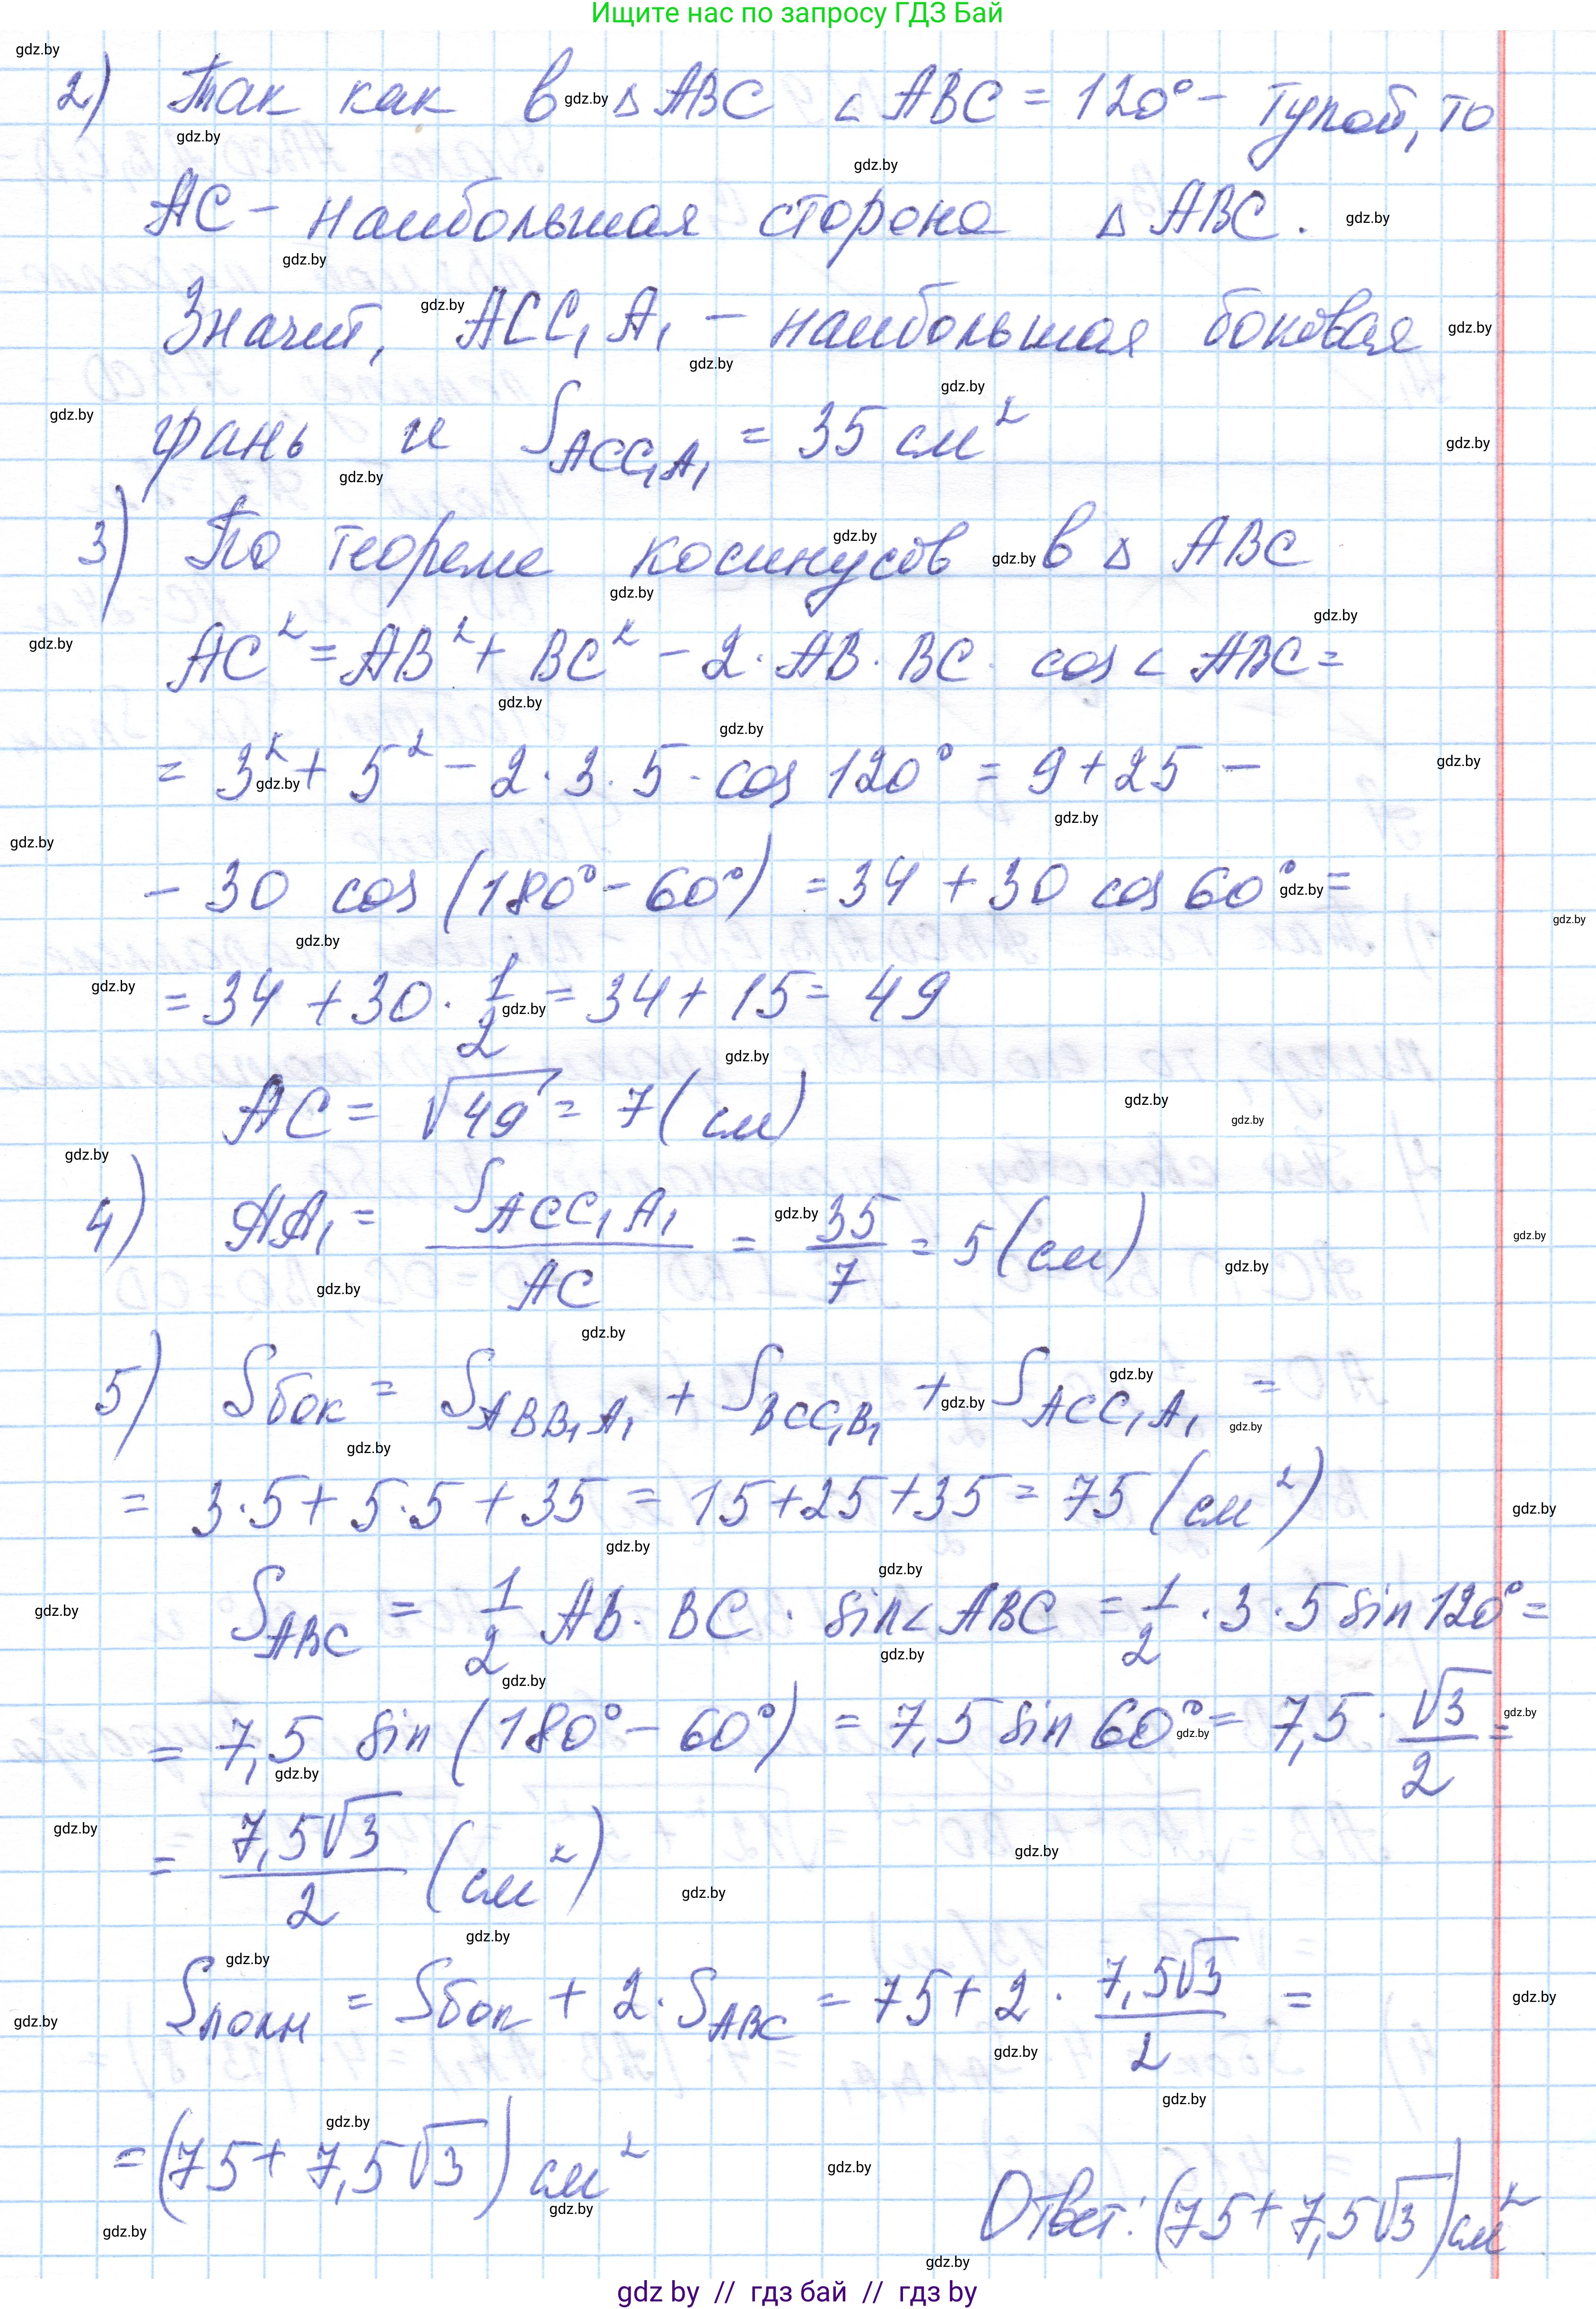 Ищите нас по запросу ГДЗ Бай
2) Так как в △ABC ∠ABC = 120° - тупой, то
AC - наибольшая сторона △ABC.
Значит, ACC₁A₁ - наибольшая боковая
грань и S_ACC₁A₁ = 35 см²
3) По теореме косинусов в △ABC
AC² = AB² + BC² - 2 · AB · BC · cos ∠ABC =
= 3² + 5² - 2 · 3 · 5 · cos 120° = 9 + 25 -
- 30 cos (180° - 60°) = 34 + 30 cos 60° =
= 34 + 30 · 1/2 = 34 + 15 = 49
AC = √49 = 7 (см)
4) AA₁ = S_ACC₁A₁ / AC = 35/7 = 5 (см)
5) Sбок = S_ABB₁A₁ + S_BCC₁B₁ + S_ACC₁A₁ =
= 3·5 + 5·5 + 35 = 15 + 25 + 35 = 75 (см²)
S_ABC = 1/2 AB · BC · sin ∠ABC = 1/2 · 3 · 5 sin 120° =
= 7,5 sin (180° - 60°) = 7,5 sin 60° = 7,5 · √3/2 =
= 7,5√3/2 (см²)
Sполн = Sбок + 2 · S_ABC = 75 + 2 · 7,5√3/2 =
= (75 + 7,5√3) см²
Ответ: (75 + 7,5√3) см²
gdz by // гдз бай // гдз by